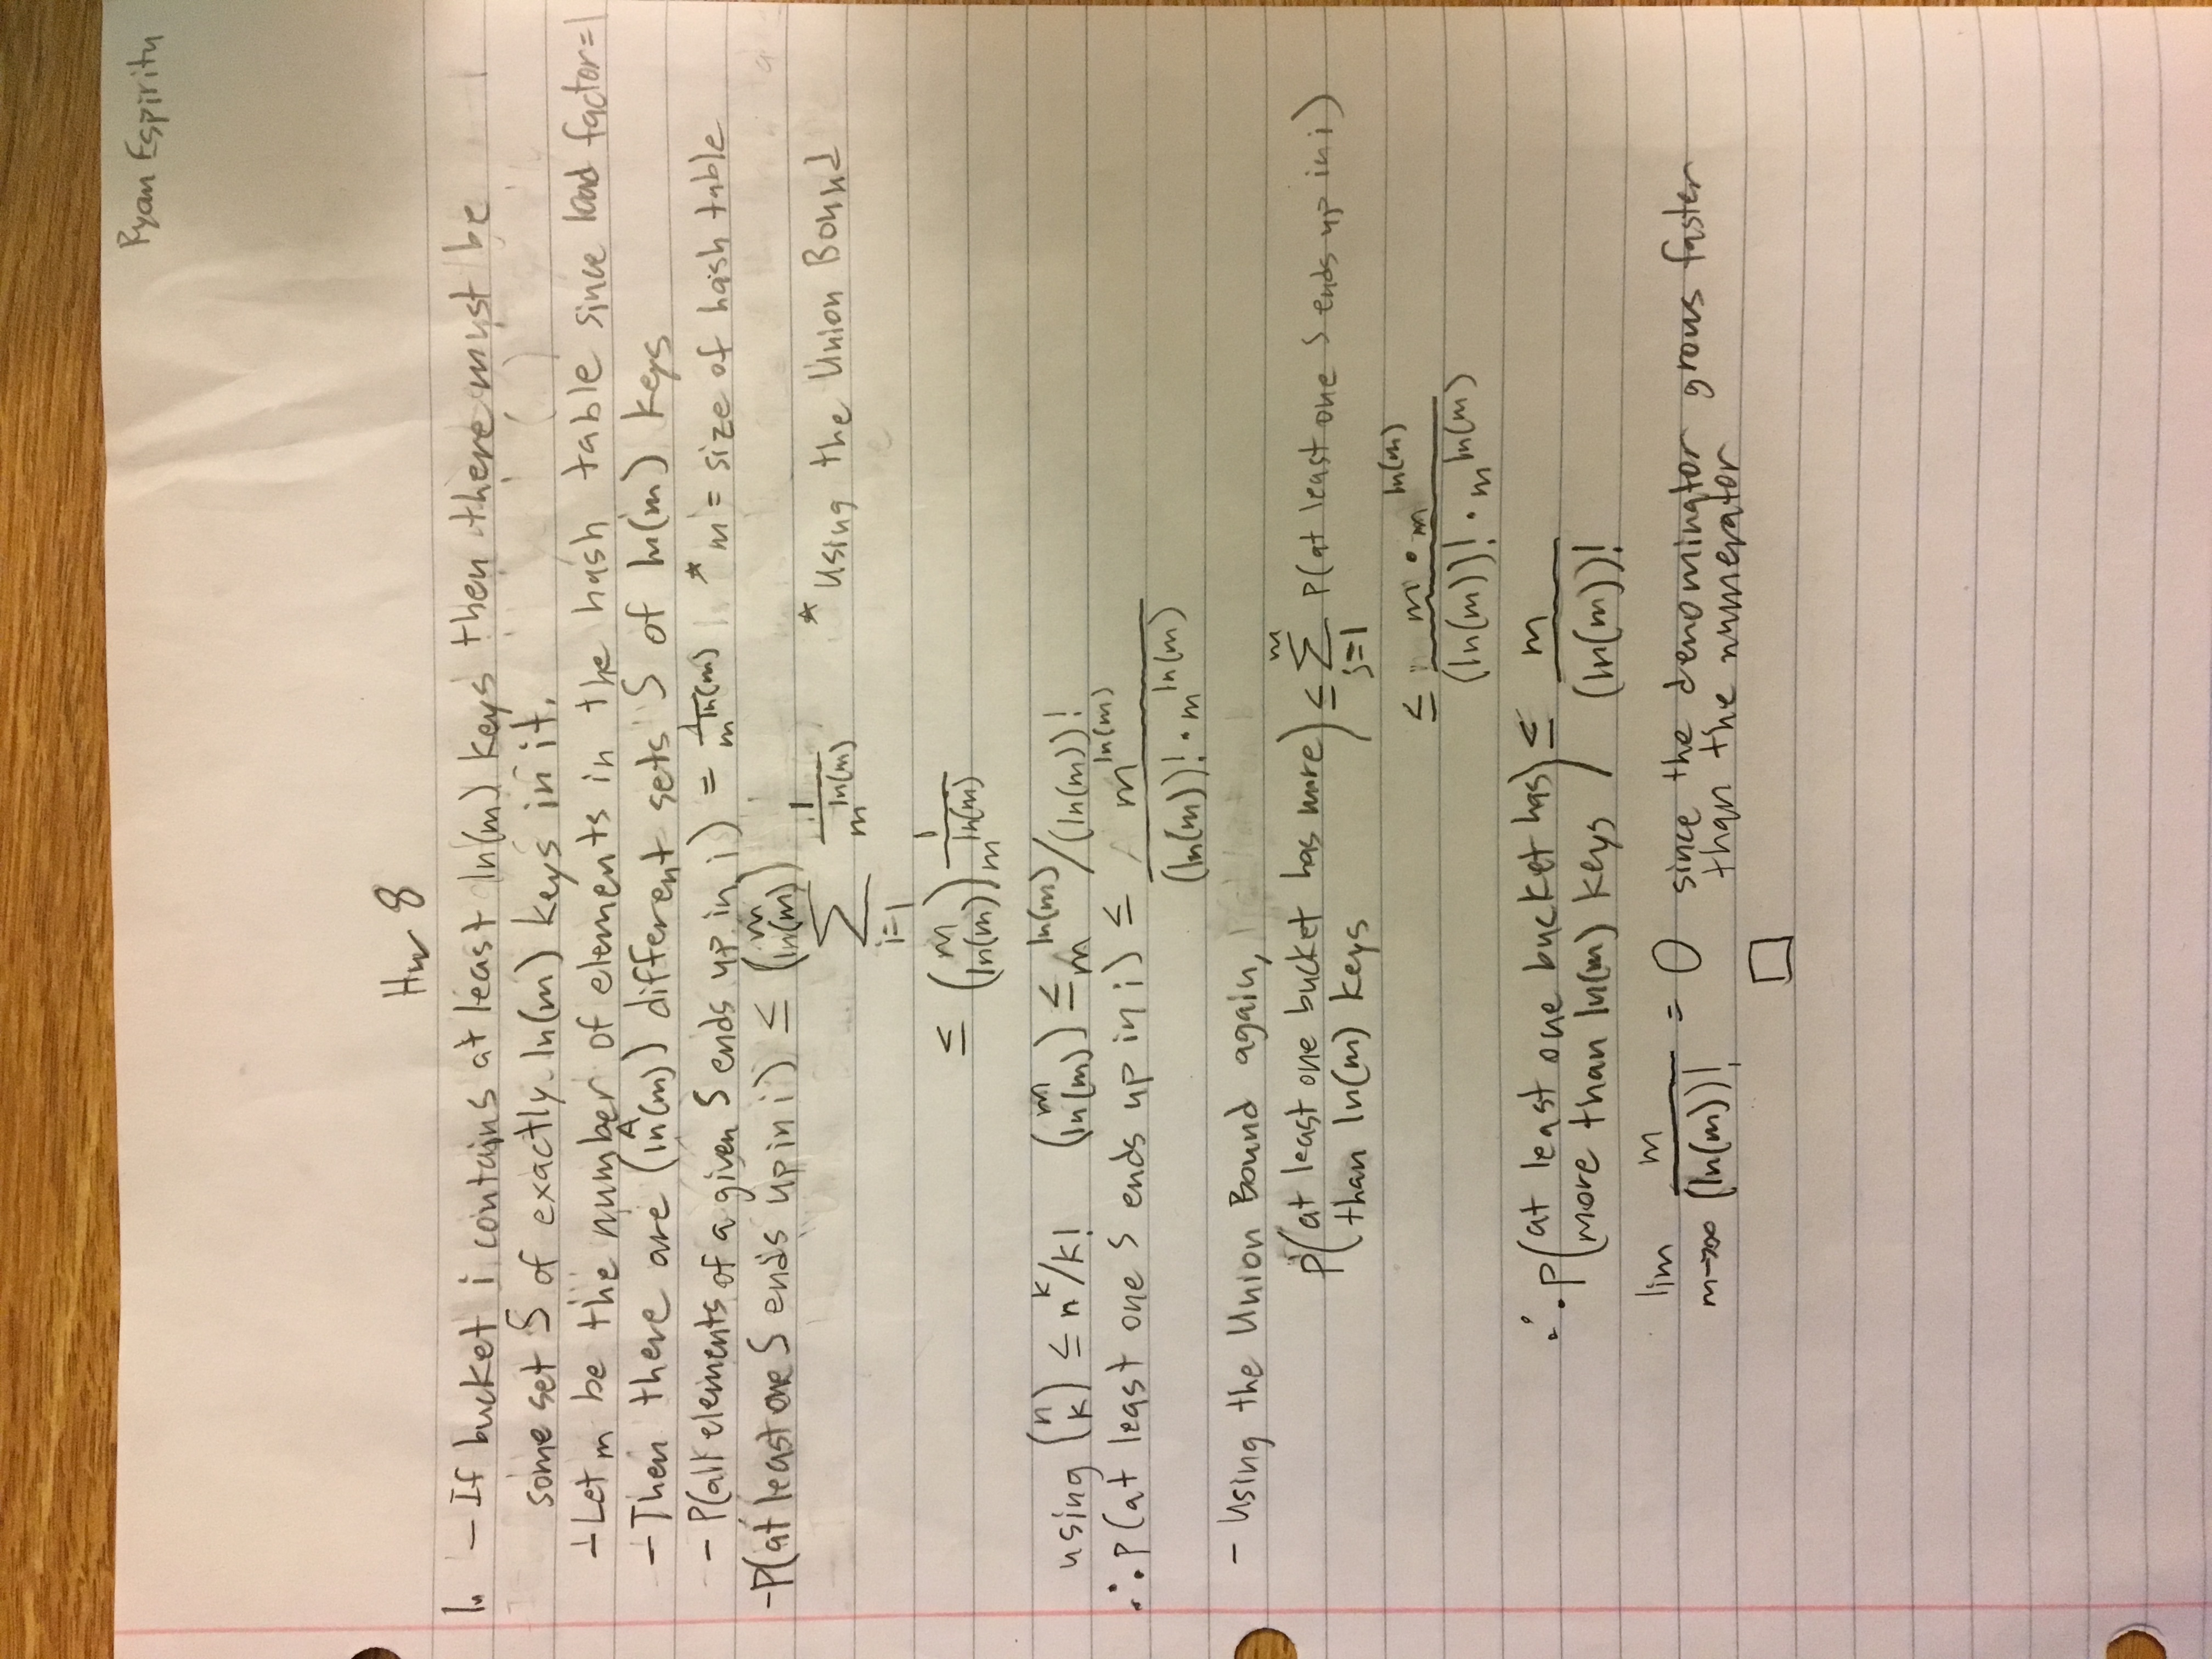 Ryan Espiritu
Hw 8
1. - If bucket i contains at least ln(m) keys then there must be
some set S of exactly ln(m) keys in it.
- Let m be the number of elements in the hash table since load factor=1
- Then there are (ln(m)) different sets S of ln(m) keys
- P(all elements of a given S ends up in i) = 1/m^ln(m) * m = size of hash table
- P(at least one S ends up in i) ≤ (m ln(m))
∑ i=1 1/m^ln(m) * Using the Union Bound
≤ (m ln(m)) 1/m^ln(m)
using (n k) ≤ n^k/k! (m ln(m)) ≤ m^ln(m)/(ln(m))!
∴ P(at least one S ends up in i) ≤ m^ln(m) / (ln(m))! • m^ln(m)
- Using the Union Bound again,
P(at least one bucket has more than ln(m) keys) ≤ ∑ j=1 m P(at least one S ends up in i)
≤ m • m^ln(m) / (ln(m))! • m^ln(m)
∴ P(at least one bucket has more than ln(m) keys) ≤ m / (ln(m))!
lim m→∞ m / (ln(m))! = 0 since the denominator grows faster
than the numerator
□